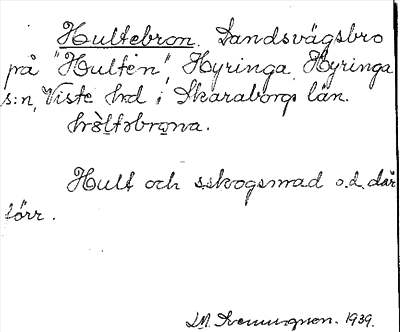 Hultebron. Landsvägsbro
på "Hulten", Hyringa, Hyringa
s:n, Viste hd i Skaraborgs län.
Hult och skogsmad o.d. där
förr.
1939.